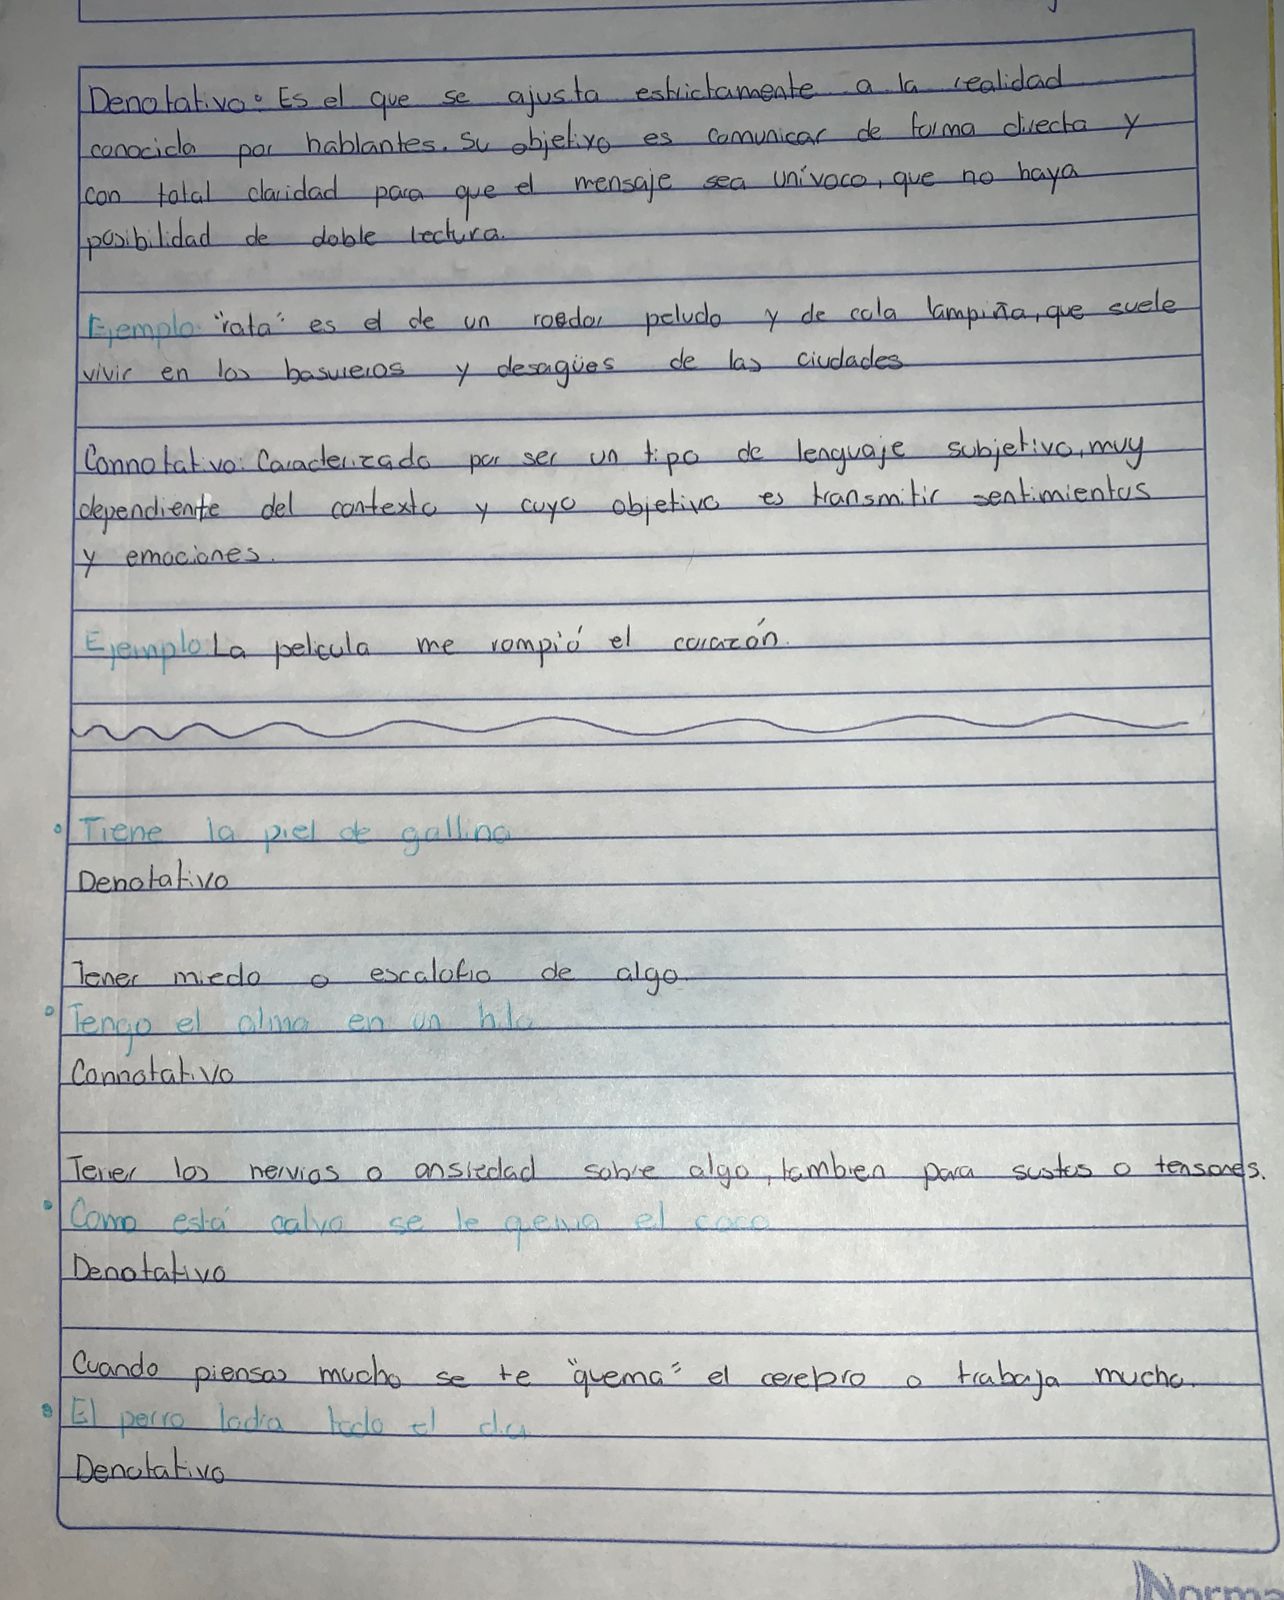 Denotativo: Es el que se ajusta estrictamente a la realidad
conocida por hablantes. Su objetivo es comunicar de forma directa y
con total claridad para que el mensaje sea unívoco, que no haya
posibilidad de doble lectura.
Ejemplo: "rata" es el de un roedor peludo y de cola lampiña, que suele
vivir en los basureros y desagües de las ciudades
Connotativo: Caracterizado por ser un tipo de lenguaje subjetivo, muy
dependiente del contexto y cuyo objetivo es transmitir sentimientos
y emociones.
Ejemplo: La pelicula me rompió el corazón.
• Tiene la piel de gallina
Denotativo
Tener miedo o escalofio de algo.
• Tengo el alma en un hilo
Connotativo
Tener los nervios o ansiedad sobre algo, tambien para sustos o
• Como está calvo se le el coco
Denotativo
Cuando piensas mucho se te "quema" el cerebro o trabaja mucho.
• El perro ladra todo el dia
Denotativo
Norma